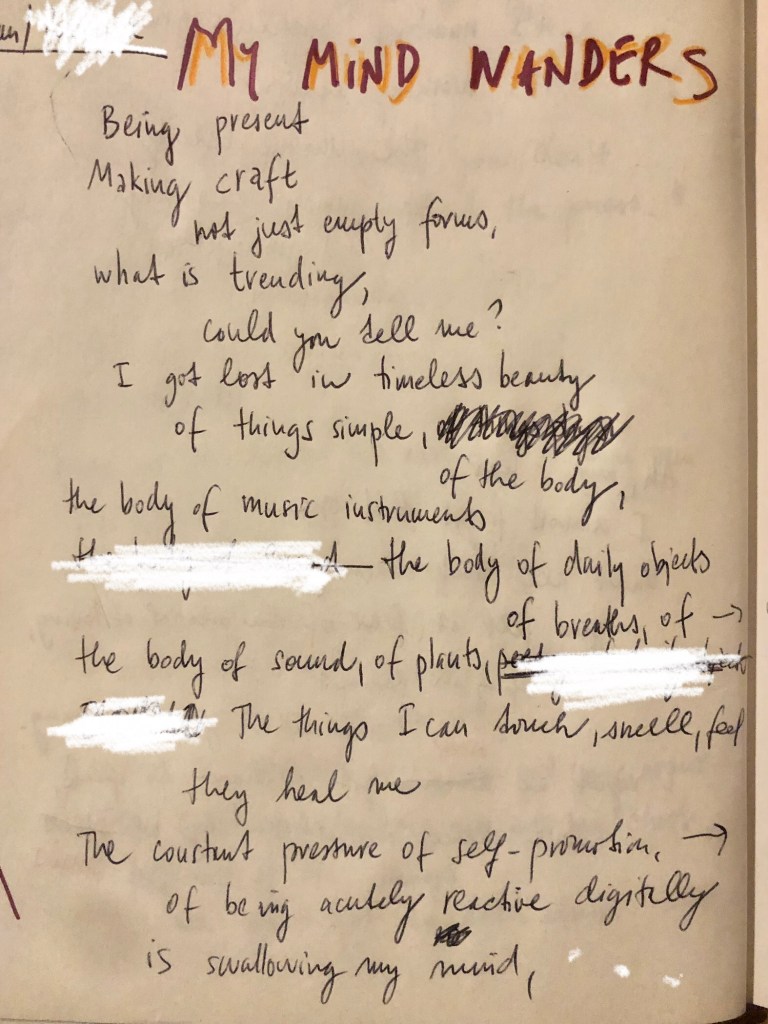 MY MIND WANDERS
Being present
Making craft
not just empty forms,
what is trending,
could you tell me?
I got lost in timeless beauty
of things simple,
of the body,
the body of music instruments
the body of daily objects
of breaths, of →
the body of sound, of plants,
The things I can touch, smell, feel
they heal me
The constant pressure of self-promotion, →
of being acutely reactive digitally
is swallowing my mind,